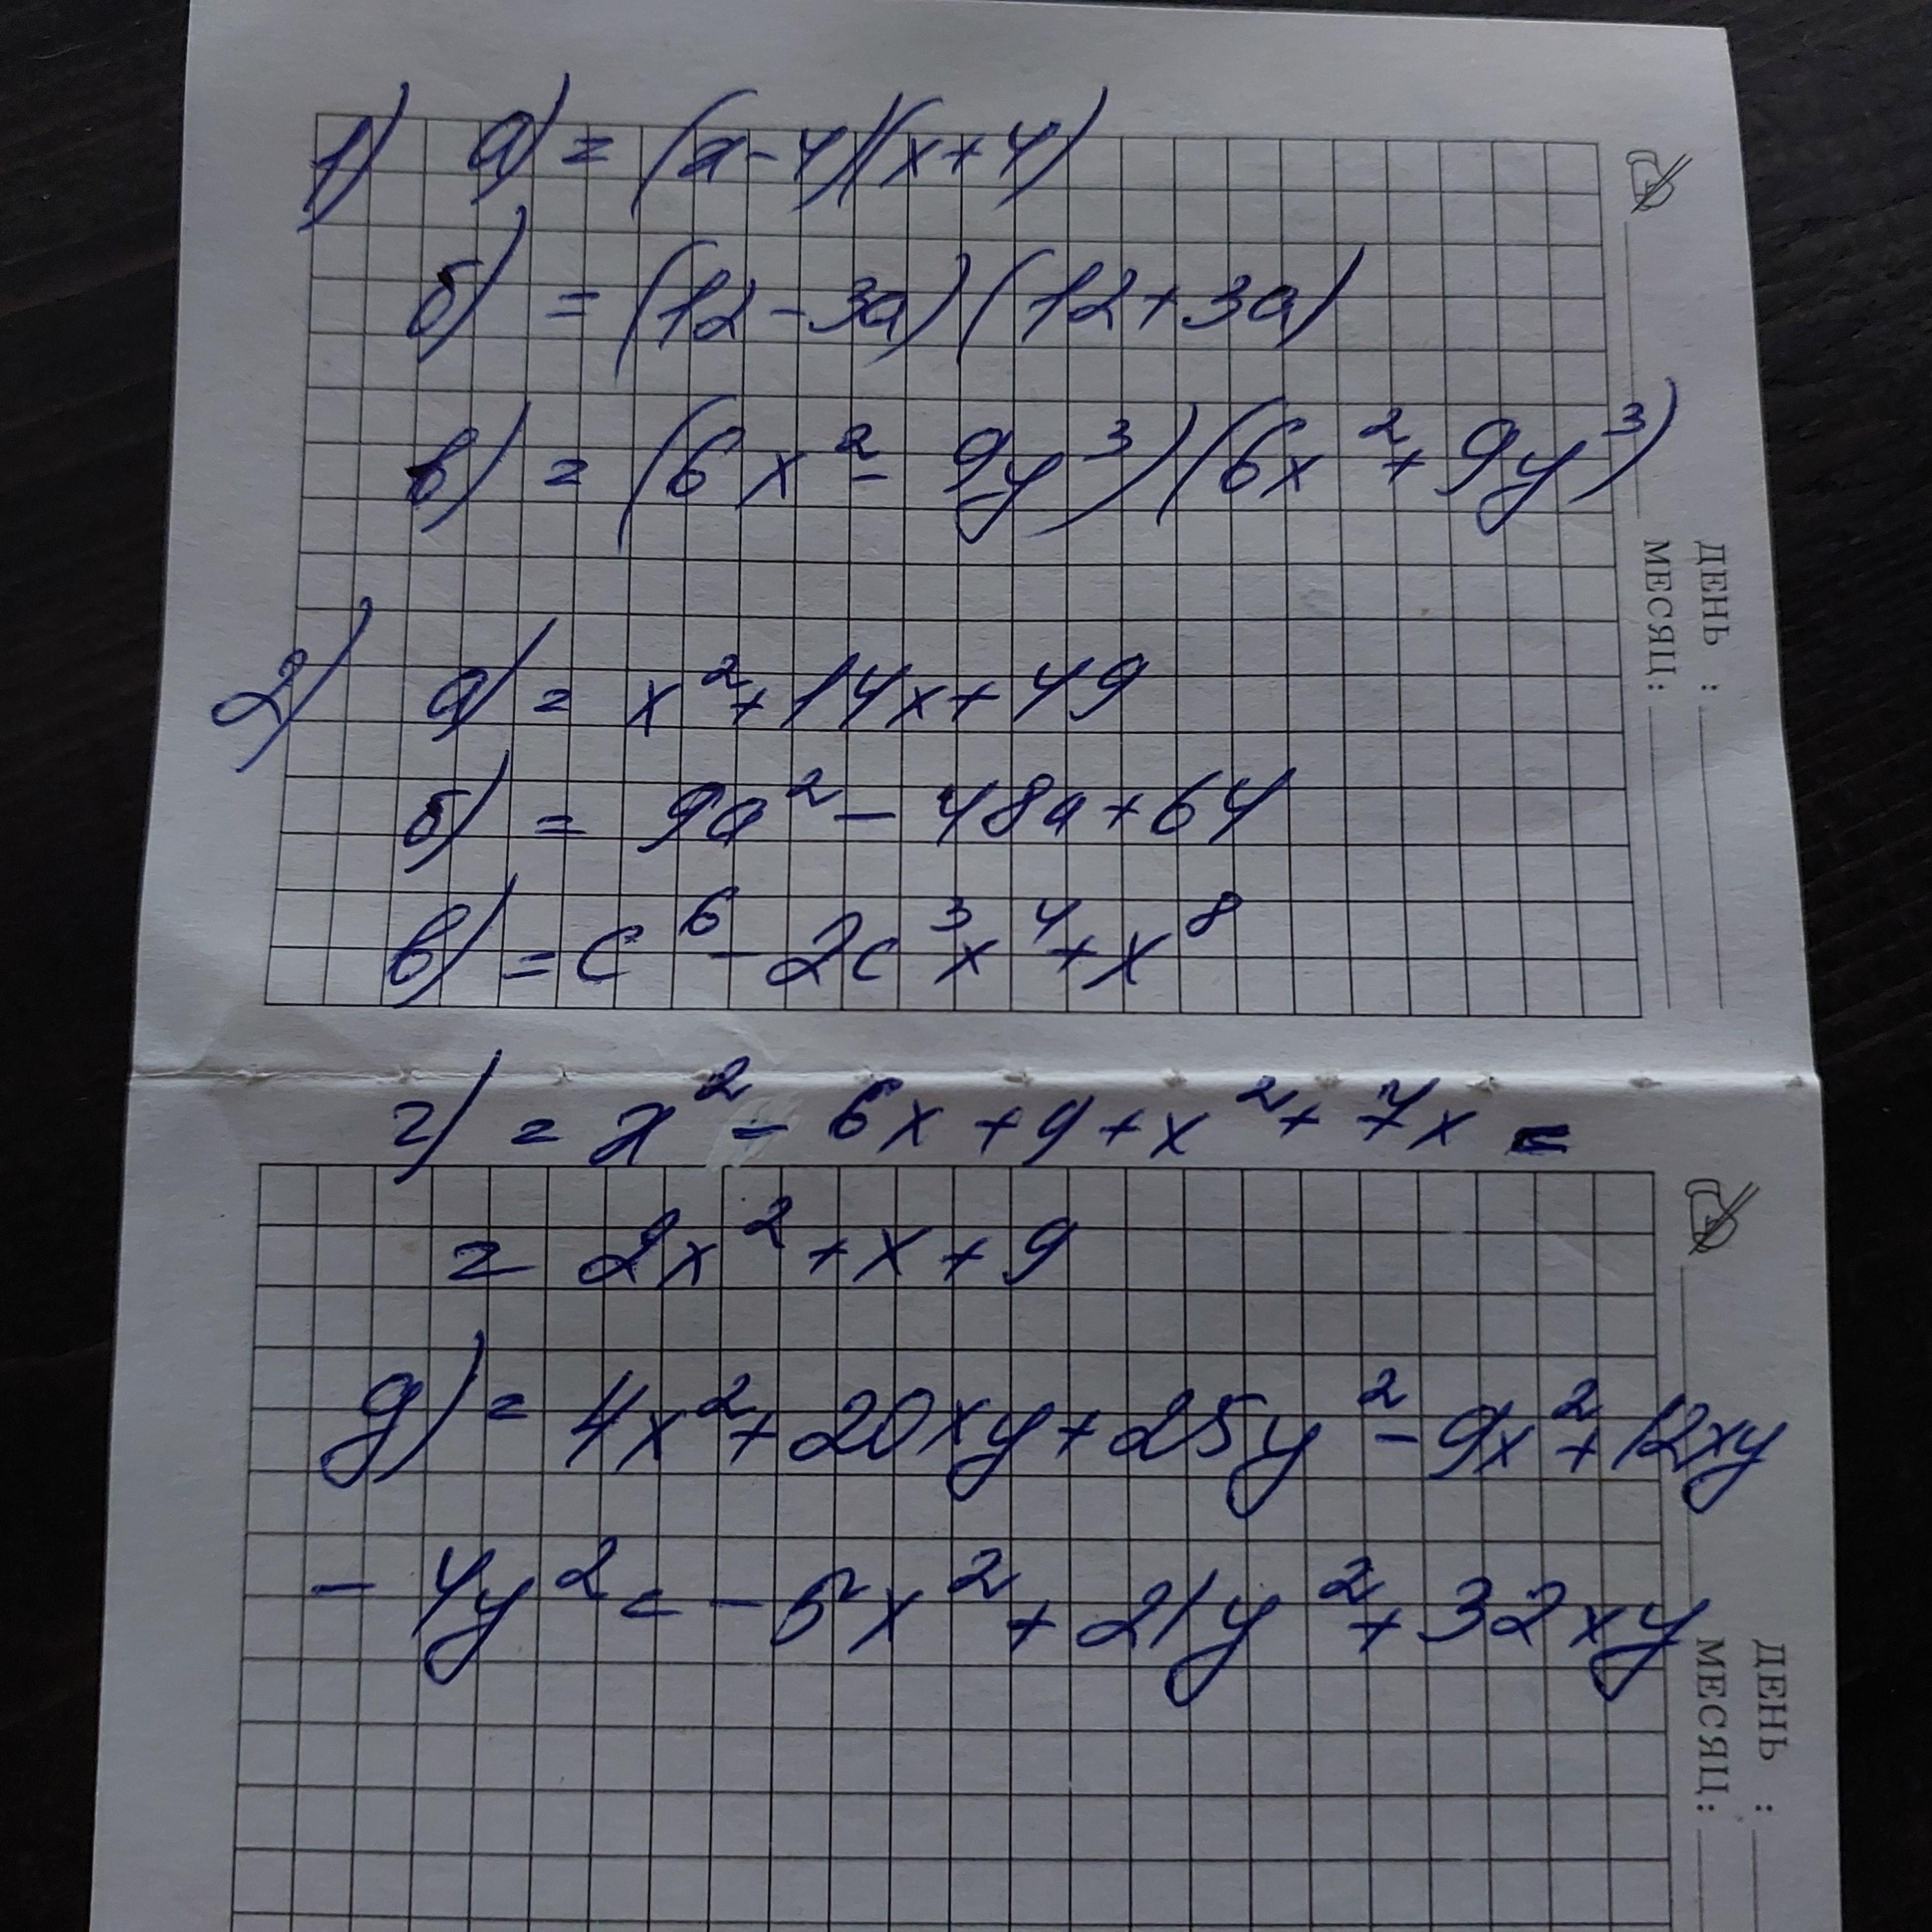 1) а) = (x-4)(x+4)
б) = (12-3a)(12+3a)
в) = (6x²- 9y³)(6x²+9y³)
2) а) = x²+14x+49
б) = 9a²- 48a+64
в) = c⁶- 2c³x⁴+x⁸
г) = x²- 6x+9+x²+7x =
= 2x²+x+9
д) = 4x²+20xy+25y²-9x²+12xy
- 4y²= -5x²+21y²+32xy
ДЕНЬ :
МЕСЯЦ:
ДЕНЬ :
МЕСЯЦ: